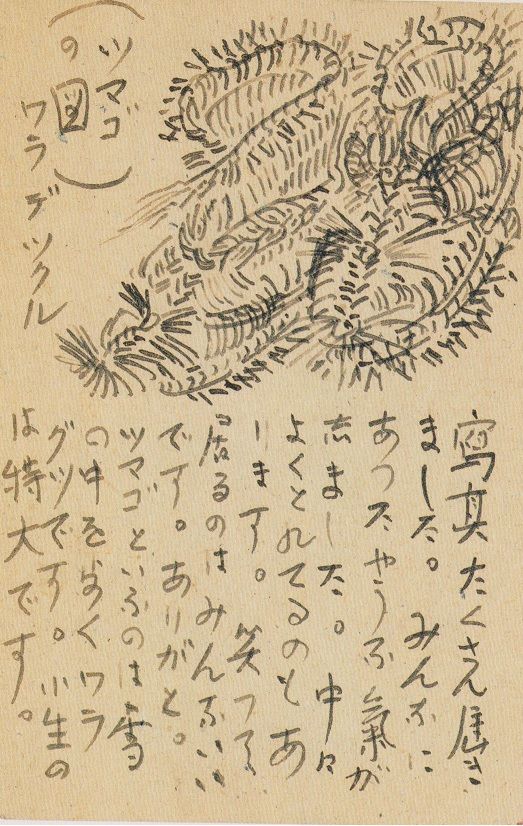 (ツマゴ
の図)
ワラデツクル
寫真たくさん届き
ました。みんなに
あつたやうな氣が
志ました。中々
よくとれてるのもあ
ります。笑つて
居るのはみんないい
です。ありがと。
ツマゴといふのは雪
の中をあるくワラ
グツです。小生の
は特大です。